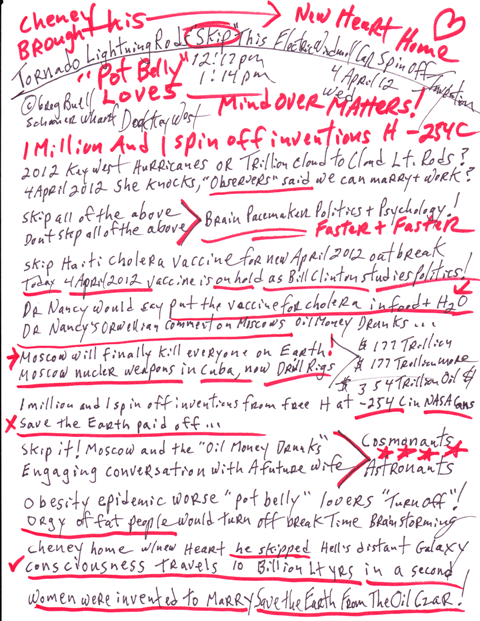 Cheney
Brought his → New Heart Home
Tornado Lightning Rod "Skip" This Electric Windmill Car Spin off
Invention
"Pot Belly" 12:12pm
1:14pm 4 April 12
Wed
Loves Mind Over MATTERS!
@Greg Buell
Schooner Wharf Dock Key West
1 Million And 1 Spin off inventions H -254C
2012 Key West Hurricanes OR Trillion cloud to cloud Lt. Rods?
4 April 2012 She knocks, "Observers" said we can marry + work?
Skip all of the above
Don't skip all of the above > Brain Pacemaker Politics + Psychology!
Faster + Faster
Skip Haiti cholera vaccine for new April 2012 outbreak
Today 4 April 2012 vaccine is on hold as Bill Clinton studies politics!
DR Nancy would say put the vaccine for cholera in food + H2O
DR Nancy's Orwellian comment on Moscows Oil Money Drunks...
→ Moscow will finally kill everyone on Earth!
Moscow nucler weapons in Cuba, now Drill Rigs
$ 177 Trillion
$ 177 Trillion more
$ 354 Trillion Oil $
1 million and 1 spin off inventions from free H at -254C in NASA Cans
X Save the Earth paid off...
Skip it! Moscow and the "Oil Money Drunks"
Engaging conversation with A future wife
> Cosmonants
★★★★
Astronants
Obesity epidemic worse "pot belly" lovers "Turn off"!
Orgy of fat people would turn off break Time Brainstorming
Cheney home w/new Heart he skipped Hell's distant Galaxy
✓ Consciousness Travels 10 Billion Lt yrs in a second
Women were invented to Marry Save the Earth From The Oil Czar!